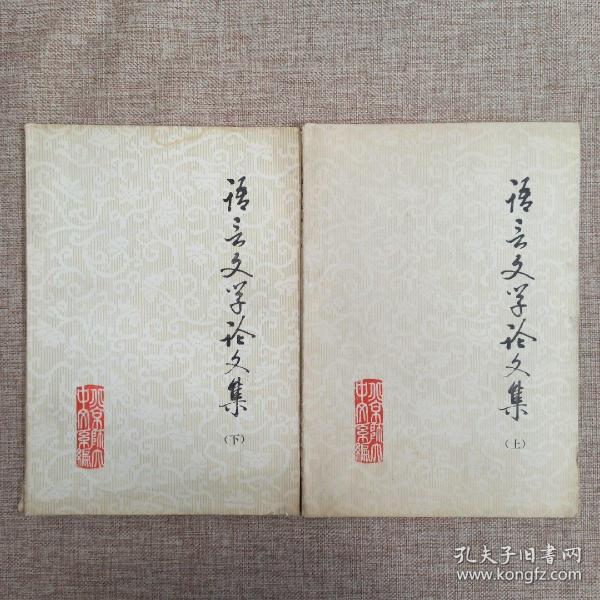 语言文学论文集
（下）
北京师大
中文系编
语言文学论文集
（上）
北京师大
中文系编
孔夫子旧书网
www.kongfz.com